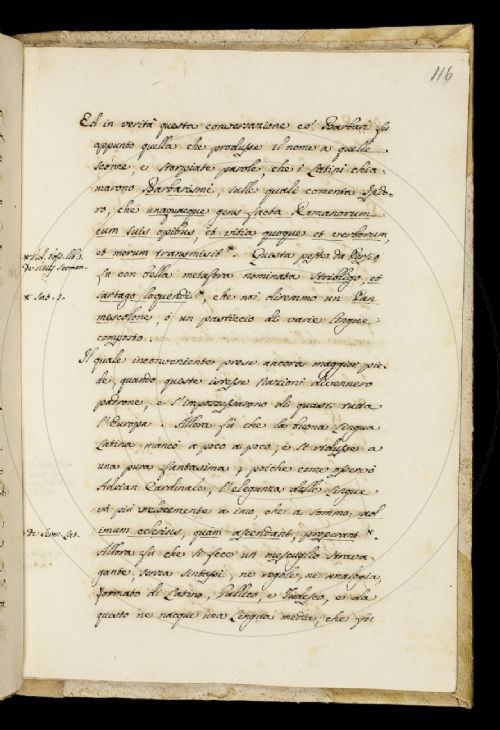 116
Ed in verità questa conversazione co' Barbari fu
appunto quella che produsse il nome a quelle
sconce, e storpiate parole, che i Latini chia-
marono Barbarismi, sulle quale comenta Isido-
ro, che unaquaeque gens facta Romanorum
cum suis opibus, et vitia quoque et verborum,
et morum transmisit*. Questa peste da Persio
* Vid. Voss. lib. 1.
De vitiis Sermon.
fu con bella metafora nominata Stribligo, et
* Sat. 1.
sartago loquendi*, che noi diremmo un Pan
mescolone, o un pasticcio di varie lingue
composto.
Il quale inconveniente prese ancora maggior pie-
de, quando queste istesse Nazioni divennero
padrone, e s'impossessarono di quasi tutta
l'Europa. Allora fù che la buona Lingua
Latina mancò a poco a poco, e si ridusse a
una pura fantasima, poiche come osservò
Adrian Cardinale, l'eleganza delle Lingue
và più velocemente a imo, che a sommo, ad
imum celerius, quam ascendant, properant*.
* De Serm. Lat.
Allora fù che si fece un mescuglio strava
gante, senza sintassi, nè regole, nè analogia,
formato di Latino, Gallico, e Tedesco, e da
questo ne nacque una Lingua media, che fù